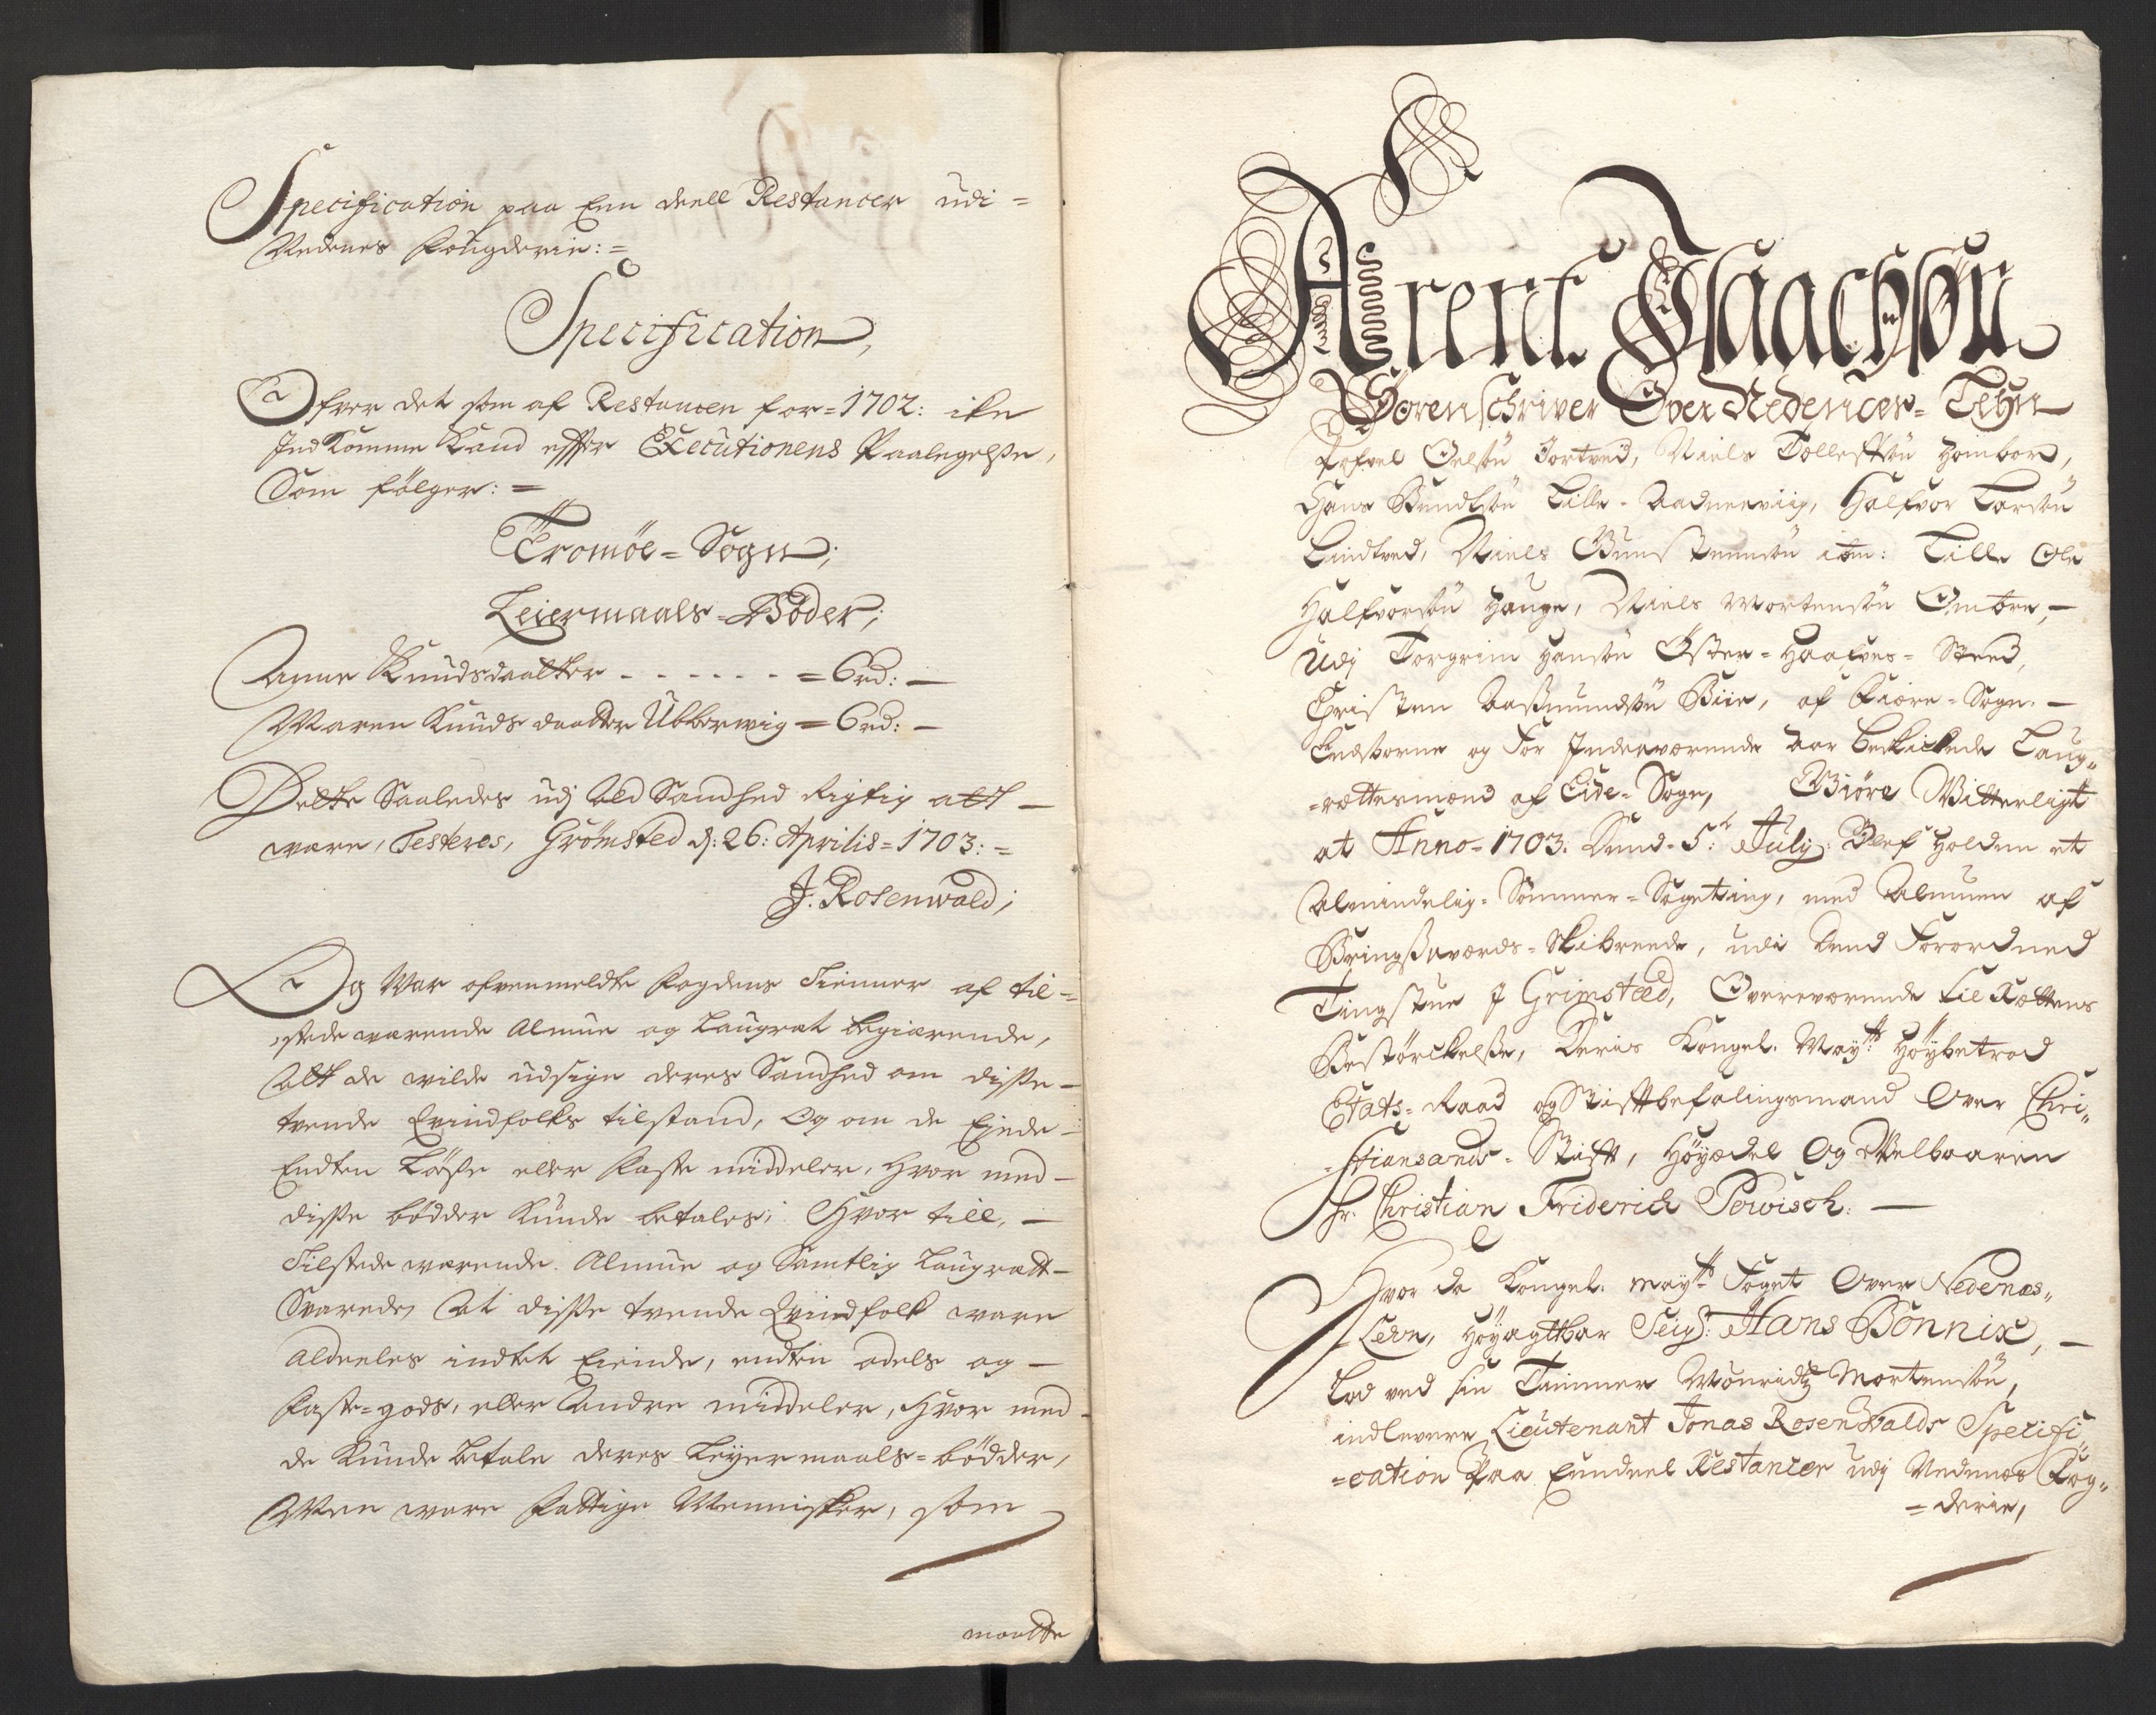 Specification paa Een deell Restancer udi =
Nedenes Fougderie: =
Specification,
Ofver det som af Restancen for = 1702: ike
Ind Komme Kand effter Executionens Paaleggelsse,
Som følger: =
Tromøe = Sogn;
Leiermaals = Bøder;
Anne Knudsdaatter - - - - - - = 6 rd: —
Maren Knuds daatter Ubberwig = 6 rd: —
Dette Saaledes udj Ald Sandhed Rigtig att —
ware, Testeres, Grømsted d: 26: Aprilis = 1703: =
J. Rosenwald;
Og War ofvenmeldte Fogdens Tienner af til =
stede wærende Almue og Laugret begiærende,
Att de wilde udsige deres Sandhed om disse —
tvende Qvindfolks tilstand, Og om de Ejede —
Endten Løsse eller Faste middeler, hvor med —
disse bødder Kunde betales; Hvor till, —
Tilstede wærende Almue og Samtlig Laugrett —
Svarede, At disse tvende Qvindfolk ware
Aldeeles indtet Eiende, endten odels og —
Faste = gods, eller Andre middeler, hvor med —
de Kunde betale deres Leyermaals = bødder,
Men ware Fattige Mennisker, som
maatte
Arent Isaachsøn
Sorenschriver Over Nedences = Lehn
Tofvel Oelsøn Jortved, Niels Tollefssøn Homborg,
Hans Knudsøn Lille - Aadnevig, Halfvor Larsøn
Landved, Niels Gunstensøn itm: Lille Ole
Halfvorsøn Hauge, Niels Mortensøn Omdre, —
Udj Torgrim Hansøn Øster = Haafves = Steed,
Christen Aassmundsøn Biie, af Fiære = Sogn. —
Eedsorne og For Inderværende Aar beskickede Laug„
= rettesmænd af Eide = Sogn, Giøre Witterligt
at Anno = 1703. Dend. 5: July: Blef holden et
Almindelig = Sommer = Sageting, med Almuen af
Bringsværds = Skibreede, udi Dend Forordned
Tingstue I Grimsteed, Overeværende til Rettens
Bestørckelsse, Deris Kongel. May:tts Høybetroed
Etats = Raad og Stiftbefalingsmand Over Chri„
= stiansands = Stifft, Høyædel Og Welbaaren
Hr. Christian Friderich Powisch. —
Hvor da Kongel. may:tts Foget Over Nedenæs„
Lehn, Høyagtbar Seigr: Hans Bønnix, —
Lod ved sin Tienner Mouridtz Mortensøn,
indlevere Lieutenant Jonas Rosenwalds Specifi„
= cation Paa Eendeel Restancer udj Nedenæs Fog„
= derie,